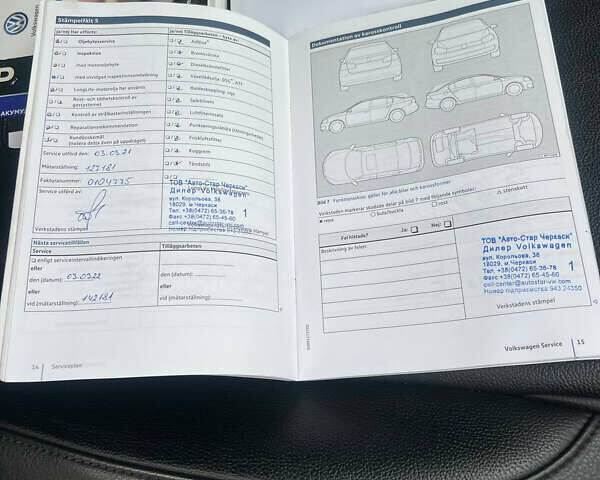 Volkswagen
Stämpelfält 5
ja/nej
ja/nej Tilläggsarbeten
Oljebytesservice
AdBlue®
Inspektion
Bromsvätska
med motoroljebyte
Dieselbränslefilter
med utvidgad inspektionsomfattning
LongLife-motorolja har använts
Rost- och täthetskontroll av
gassystemet
Luftfilterinsats
Kontroll av strålkastarinställningen
Reparationsrekommendation
Kundönskemål
(notera detta även på uppdraget)
Kuggrem
Tändstift
Service utförd den: 03.03.21
Mätarställning: 127181
Fakturanummer: 0104775
Service utförd av:
ТОВ "Авто-Стар Черкаси"
Дилер Volkswagen
вул. Корольова, 38
18029, м.Черкаси
Тел. +38(0472) 65-36-78 1
Факс +38(0472) 65-45-60
call-center@autostar-vw.com
Номер підприємства 943
Verkstadens stämpel
Nästa servicetillfällen
Service
Tilläggsarbeten
enligt serviceintervallindikeringen
eller
den (datum): 03.03.22
den (datum):
eller
eller
vid (mätarställning): 142181
vid (mätarställning):
14 Serviceplan
Dokumentation av karosskontroll
Bild 7 Funktionsskiss: gäller för alla bilar och karossformer
Verkstaden markerar skadade delar på bild 7 med följande symboler:
stenskott
repa
bula/buckla
rost
Fel hittade?
Ja:
Nej:
Beskrivning av felen:
ТОВ "Авто-Стар Черкаси"
Дилер Volkswagen
вул. Корольова, 38
18029, м.Черкаси
Тел. +38(0472) 65-36-78 1
Факс +38(0472) 65-45-60
call-center@autostar-vw.com
Номер підприємства 943 24350
Verkstadens stämpel
Volkswagen Service 15